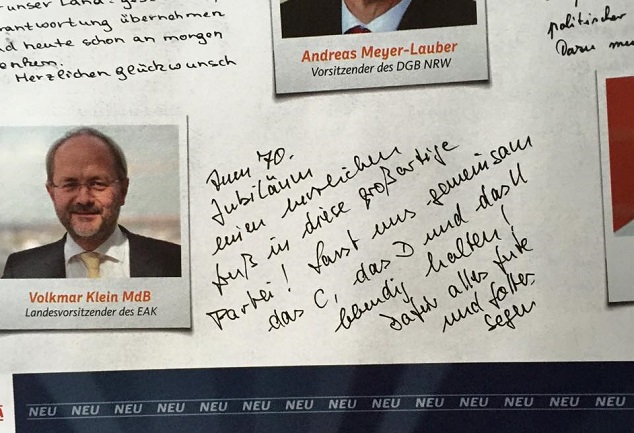 unser Land
rantwortung übernommen
d heute schon an morgen
enken.
Herzlichen Glückwunsch
Andreas Meyer-Lauber
Vorsitzender des DGB NRW
politischer
Dazu
Volkmar Klein MdB
Landesvorsitzender des EAK
Zum 70.
Jubiläum
einen herzlichen
Gruß in diese großartige
Partei! Lasst uns gemeinsam
das C, das D und das U
lebendig halten!
Dafür alles Gute
und Gottes
Segen
NEU NEU NEU NEU NEU NEU NEU NEU NEU NEU NEU NEU NEU NEU